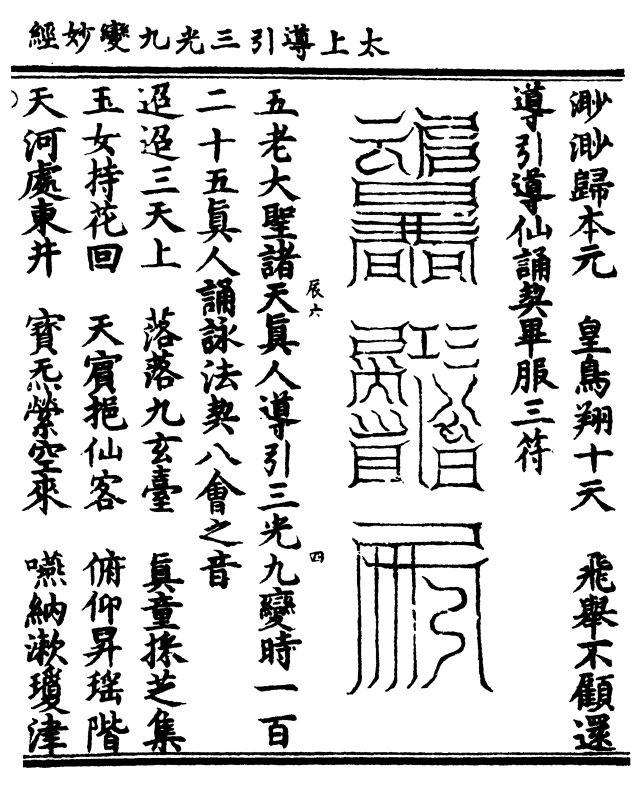 太上導引三光九變妙經
渺渺歸本元 皇鳥翔十天 飛舉不顧還
導引導仙誦契畢服三符
五老大聖諸天眞人導引三光九變時一百
辰六
四
二十五眞人誦詠法契八會之音
迢迢三天上 落落九玄臺 眞童採芝集
玉女持花回 天賓挹仙客 俯仰昇瑶階
天河處東井 寶炁縈空來 嚥納漱瓊津